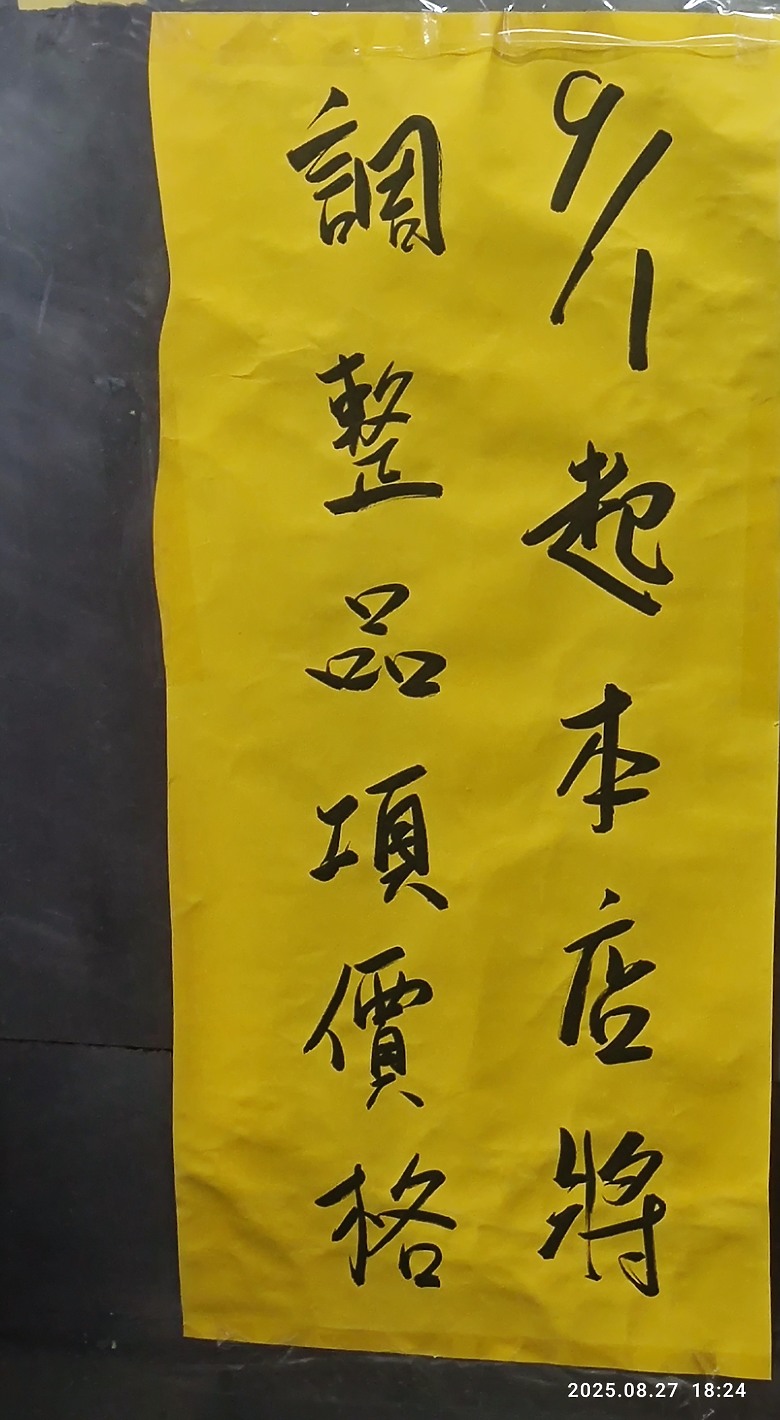 9/1起本店將
調整品項價格
2025.08.27 18:24